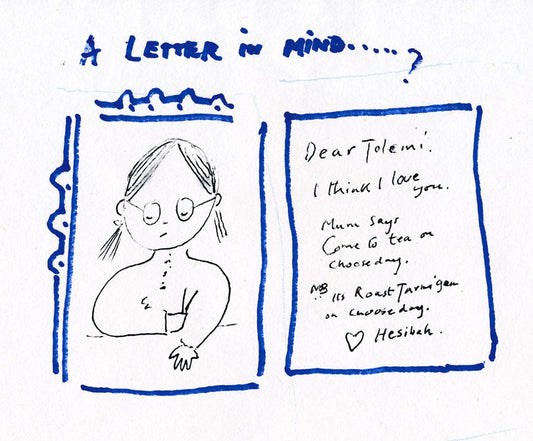 A LETTER in MIND.....?
Dear Tolemi!
I think I love
you.
Mum says
Come to tea on
chooseday.
NB its Roast Tarmigan
on chooseday.
♡ Hesibah.